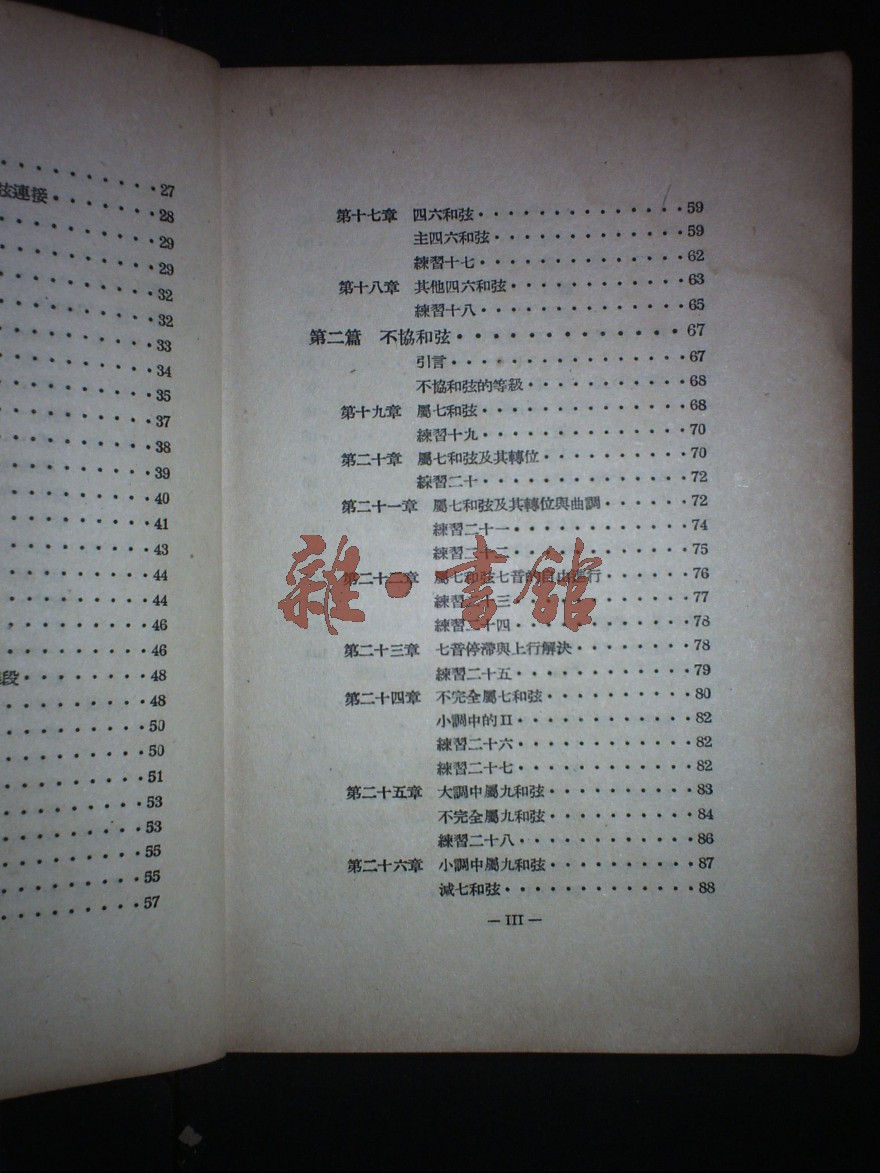 27
弦連接 28
29
29
32
32
33
34
35
37
38
39
40
41
43
44
44
46
46
段 48
48
50
50
51
53
53
55
55
57
第十七章 四六和弦 59
主四六和弦 59
練習十七 62
第十八章 其他四六和弦 63
練習十八 65
第二篇 不協和弦 67
引言 67
不協和弦的等級 68
第十九章 屬七和弦 68
練習十九 70
第二十章 屬七和弦及其轉位 70
練習二十 72
第二十一章 屬七和弦及其轉位與曲調 72
練習二十一 74
練習二十二 75
第二十二章 屬七和弦七音的自由進行 76
練習二十三 77
練習二十四 78
第二十三章 七音停滯與上行解決 78
練習二十五 79
第二十四章 不完全屬七和弦 80
小調中的II 82
練習二十六 82
練習二十七 82
第二十五章 大調中屬九和弦 83
不完全屬九和弦 84
練習二十八 86
第二十六章 小調中屬九和弦 87
減七和弦 88
— III —
雜·書館